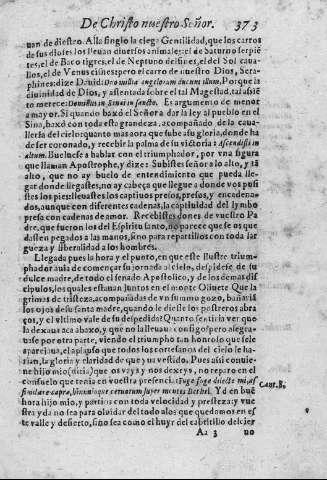 De Christo nuestro Señor. 373
uan de diestro. Alla fingio la ciega Gentilidad, que los carros
de sus dioses los lleuan diuersos animales: el de Saturno serpiē
tes, el de Baco tigres, el de Neptuno delfines, el del Sol caua-
llos, el de Venus cisnes: pero el carro de nuestro Dios, Sera-
phines: dizelo Dauid: Porque la
diuinidad de Dios, y assentada sobre el tal Magestad, tal assiē
to merece: Dominus in Sina in sancto. Es argumento de menor
a mayor. Si quando baxò el Señor a dar la ley al pueblo en el
Sina, baxò con toda esta grandeza, acompañado de la caua-
lleria del cielo: quanto mas aora que sube a su gloria, donde ha
de ser coronado, y recebir la palma de su victoria: Ascendisti in
altum. Bueluese a hablar con el triumphador, por vna figura
que llaman Apostrophe, y dize: Subistes señor a lo alto, y tā
alto, que no ay buelo de entendimiento que pueda lle-
gar donde llegastes, no ay cabeça que llegue a donde vos pusi
stes los pies: lleuastes los captiuos presos, presos, y encadena-
dos, aunque con diferentes cadenas, la captiuidad del lymbo
presa con cadenas de amor. Recebistes dones de vuestro Pa
dre, que fueron los del Espiritu santo, no parece que se os que
dassen pegados a las manos, sino para repartillos con toda lar
gueza y liberalidad a los hombres.
Llegada pues la hora y el punto, en que este illustre trium-
phador auia de començar su jornada al cielo, despidese de su
dulce madre, de todo el senado Apostolico, y de los demas dis
cipulos, los quales estauan juntos en el monte Oliuete Que la
grimas de tristeza, acompañadas de vn summo gozo, bañariā
los ojos de su santa madre, quando le diesse los postreros abra
ços, y el vltimo vale de su despedida? Quanto sentiria ver que
la dexaua aca abaxo, y que no la lleuaua consigo? pero alegra-
uase por otra parte, viendo el triumpho tan honroso que se le
aparejaua, el aplauso que todos los cortesanos del cielo le ha-
rian, la gloria y claridad de que yua vestido. Pues assi conuie-
ne hijo mio (diria) que os vays y nos dexeys, no reparo en el
consuelo que tenia en vuestra presencia: Fuge fuge dilecte mi, as Cant. 8.
similare capræ, hinnuloque ceruorum super montes Bethel. Yd en buē
hora hijo mio, y partios con toda velocidad y presteza: y vue
stra yda no sea para oluidar del todo a los que quedamos en es
te valle y desierto, sino sea como el huyr del cabritillo del cier
Aa 3 uo